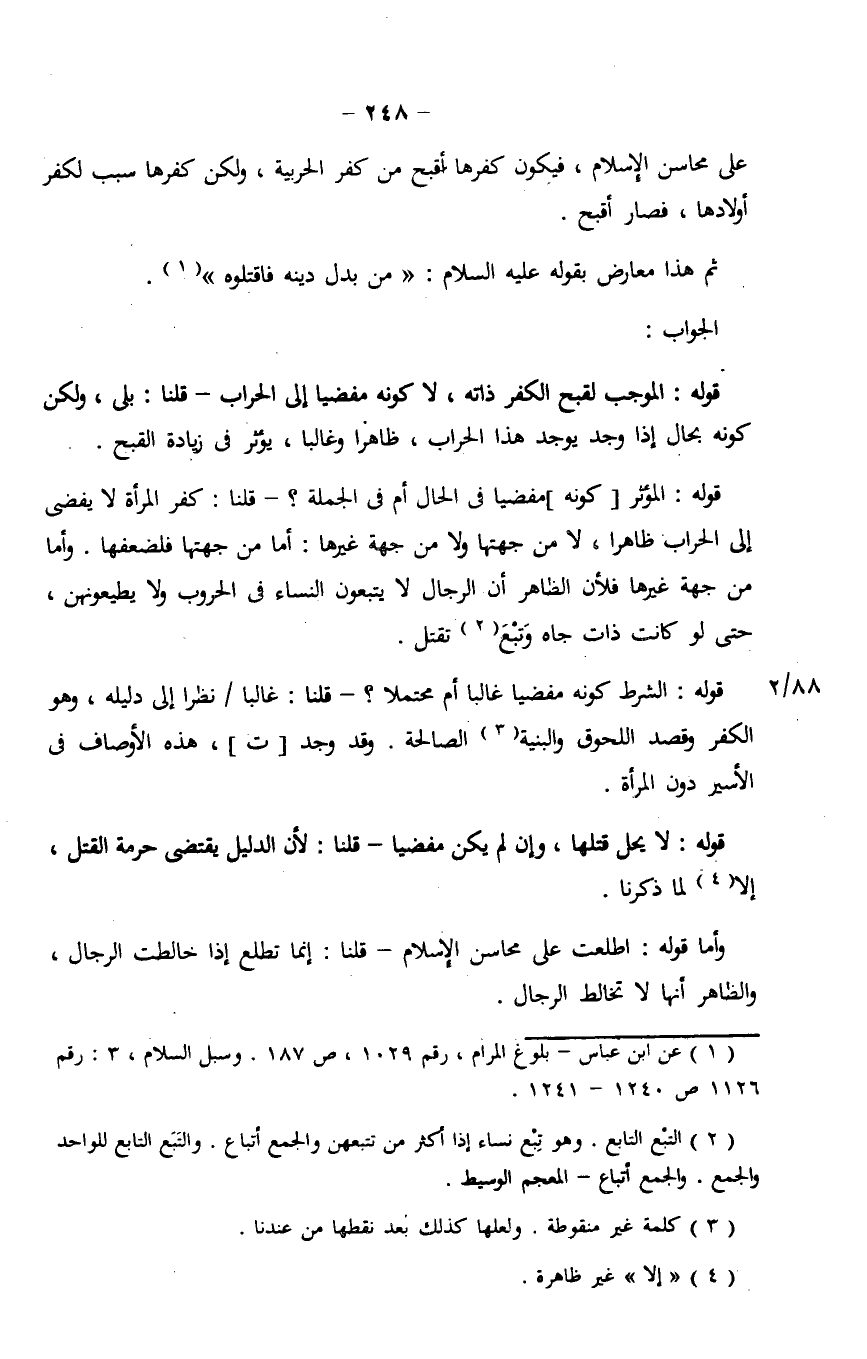 – ٢٤٨ –
على محاسن الإسلام ، فيكون كفرها أقبح من كفر الحربية ، ولكن كفرها سبب لكفر
أولادها ، فصار أقبح .
ثم هذا معارض بقوله عليه السلام : « من بدل دينه فاقتلوه »(١) .
الجواب :
قوله : الموجب لقبح الكفر ذاته ، لا كونه مفضيا إلى الحراب – قلنا : بلى ، ولكن
كونه بحال إذا وجد يوجد هذا الحراب ، ظاهرا وغالبا ، يؤثر فى زيادة القبح .
قوله : المؤثر [ كونه ]مفضيا فى الحال أم فى الجملة ؟ – قلنا : كفر المرأة لا يفضى
إلى الحراب ظاهرا ، لا من جهتها ولا من جهة غيرها : أما من جهتها فلضعفها . وأما
من جهة غيرها فلأن الظاهر أن الرجال لا يتبعون النساء فى الحروب ولا يطيعونهن ،
حتى لو كانت ذات جاه وَتبْعَ(٢) تقتل .
٢/٨٨ قوله : الشرط كونه مفضيا غالبا أم محتملا ؟ – قلنا : غالبا / نظرا إلى دليله ، وهو
الكفر وقصد اللحوق والبنية(٣) الصالحة . وقد وجد [ ت ] ، هذه الأوصاف فى
الأسير دون المرأة .
قوله : لا يحل قتلها ، وإن لم يكن مفضيا – قلنا : لأن الدليل يقتضى حرمة القتل ،
إلا(٤) لما ذكرنا .
وأما قوله : اطلعت على محاسن الإسلام – قلنا : إنما تطلع إذا خالطت الرجال ،
والظاهر أنها لا تخالط الرجال .
( ١ ) عن ابن عباس – بلوغ المرام ، رقم ١٠٢٩ ، ص ١٨٧ . وسبل السلام ، ٣ : رقم
١١٢٦ ص ١٢٤٠ – ١٢٤١ .
( ٢ ) التبْع التابع . وهو تِبْع نساء إذا أكثر من تتبعهن والجمع أتباع . والتَبَع التابع للواحد
والجمع . والجمع أتباع – المعجم الوسيط .
( ٣ ) كلمة غير منقوطة . ولعلها كذلك بُعد نقطها من عندنا .
( ٤ ) « إلا » غير ظاهرة .